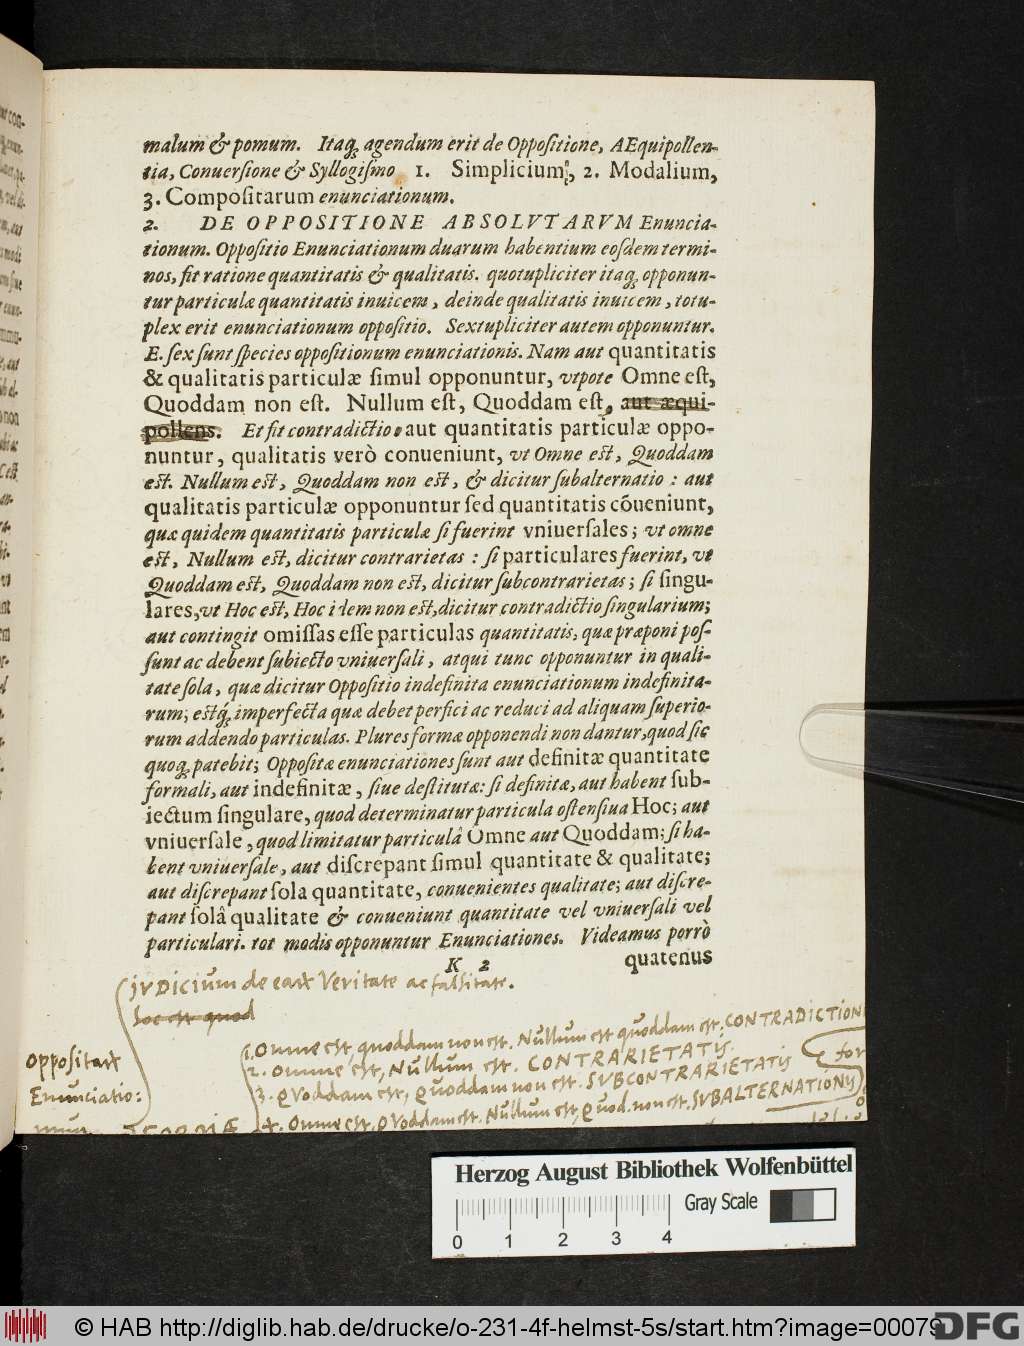 malum & pomum. Itaq; agendum erit de Oppositione, AEquipollen-
tia, Conuersione & Syllogismo 1. Simplicium, 2. Modalium,
3. Compositarum enunciationum.
2. DE OPPOSITIONE ABSOLVTARVM Enuncia-
tionum. Oppositio Enunciationum duarum habentium eosdem termi-
nos, fit ratione quantitatis & qualitatis. quotupliciter itaq; opponun-
tur particulæ quantitatis inuicem, deinde qualitatis inuicem, totu-
plex erit enunciationum oppositio. Sextupliciter autem opponuntur.
E. sex sunt species oppositionum enunciationis. Nam aut quantitatis
& qualitatis particulæ simul opponuntur, vtpote Omne est,
Quoddam non est. Nullum est, Quoddam est, aut æqui-
pollens. Et fit contradictio aut quantitatis particulæ oppo-
nuntur, qualitatis verò conueniunt, vt Omne est, Quoddam
est. Nullum est, Quoddam non est, & dicitur subalternatio: aut
qualitatis particulæ opponuntur sed quantitatis cõueniunt,
quæ quidem quantitatis particulæ si fuerint vniuersales; vt omne
est, Nullum est, dicitur contrarietas: si particulares fuerint, vt
Quoddam est, Quoddam non est, dicitur subcontrarietas; si singu-
lares, vt Hoc est, Hoc idem non est, dicitur contradictio singularium;
aut contingit omissas esse particulas quantitatis, quæ præponi pos-
sunt ac debent subiecto vniuersali, atqui tunc opponuntur in quali-
tate sola, quæ dicitur Oppositio indefinita enunciationum indefinita-
rum; estq; imperfecta quæ debet perfici ac reduci ad aliquam superio-
rum addendo particulas. Plures formæ opponendi non dantur, quod sic
quoq; patebit; Oppositæ enunciationes sunt aut definitæ quantitate
formali, aut indefinitæ, siue destitutæ: si definitæ, aut habent sub-
iectum singulare, quod determinatur particula ostensiua Hoc; aut
vniuersale, quod limitatur particulâ Omne aut Quoddam; si ha-
bent vniuersale, aut discrepant simul quantitate & qualitate;
aut discrepant sola quantitate, conuenientes qualitate; aut discre-
pant solâ qualitate & conueniunt quantitate vel vniuersali vel
particulari. tot modis opponuntur Enunciationes. Videamus porrò
K 2 quatenus
jVDICIUM de earum Veritate ac falsitate.
hoc est quod
Oppositarum
Enunciatio:
num
FORMÆ
1. Omne est, quoddam non est. Nullum est quoddam est. CONTRADICTION
2. Omne est, Nullum est. CONTRARIETATIS.
3. QVoddam est, QVoddam non est. SVBCONTRARIETATIS
4. Omne est, QVoddam est. Nullum est, QVod. non est. SVBALTERNATIONIS
for
Herzog August Bibliothek Wolfenbüttel
Gray Scale
0 1 2 3 4
© HAB http://diglib.hab.de/drucke/o-231-4f-helmst-5s/start.htm?image=00079
DFG